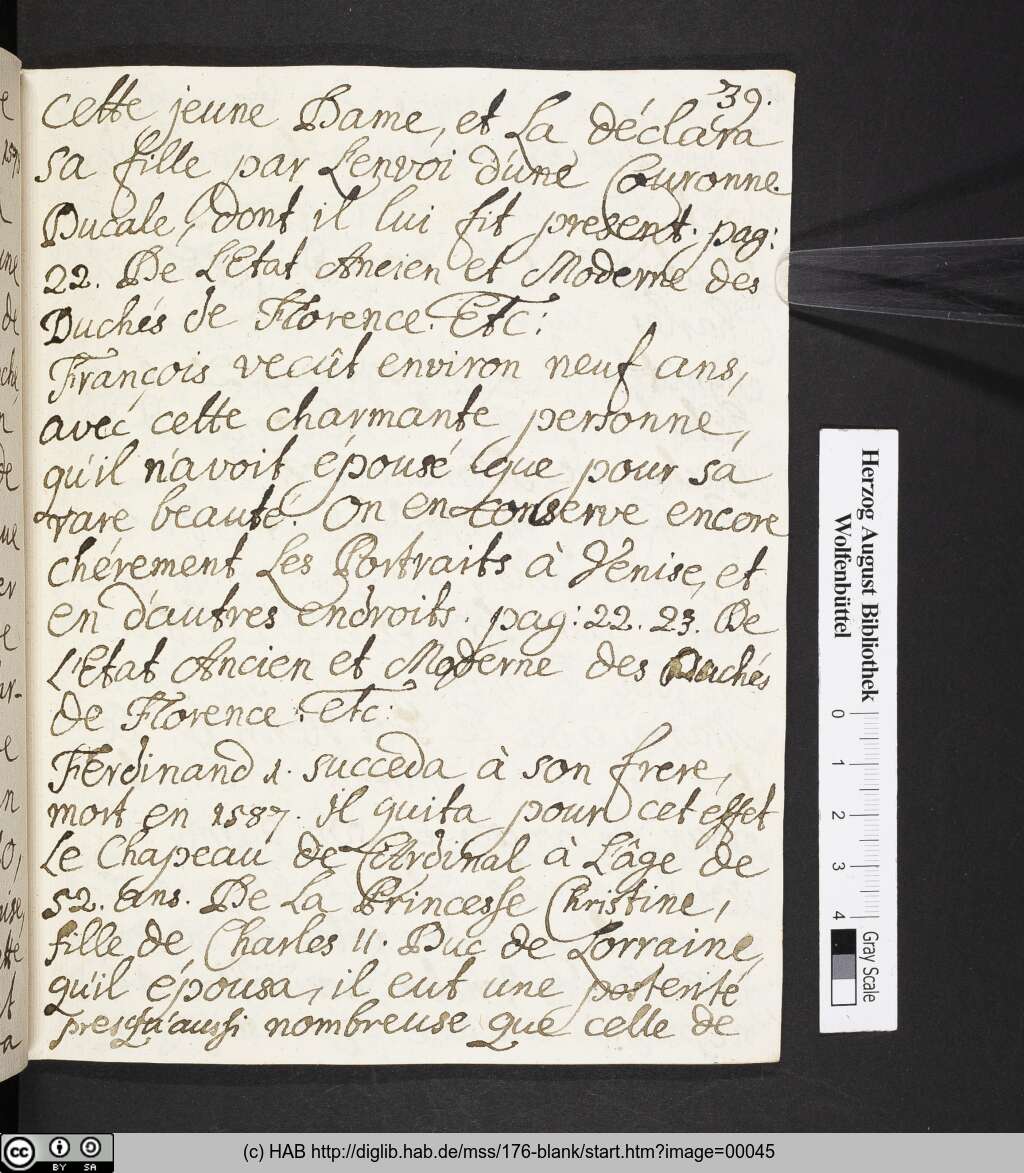 39.
cette jeune Dame, et La déclara
sa fille par L'envoi d'une Couronne
Ducale, dont il lui fit present. pag:
22. De L'Etat Ancien et Moderne des
Duchés de Florence. Etc:
François vecût environ neuf ans,
avec cette charmante personne,
qu'il n'avoit épousé que pour sa
rare beauté. On en conserve encore
chérement Les Portraits à Venise, et
en d'autres endroits. pag: 22. 23. De
L'Etat Ancien et Moderne des Duchés
de Florence. Etc:
Ferdinand 1. succeda à son frere,
mort en 1587. il quita pour cet éffet
Le Chapeau de Cardinal à L'âge de
52. ans. De La Princesse Christine,
fille de Charles II. Duc de Lorraine,
qu'il épousa, il eut une posterité
presqu'aussi nombreuse que celle de
Herzog August Bibliothek
Wolfenbüttel
0 1 2 3 4
Gray Scale
(c) HAB http://diglib.hab.de/mss/176-blank/start.htm?image=00045
cc BY SA